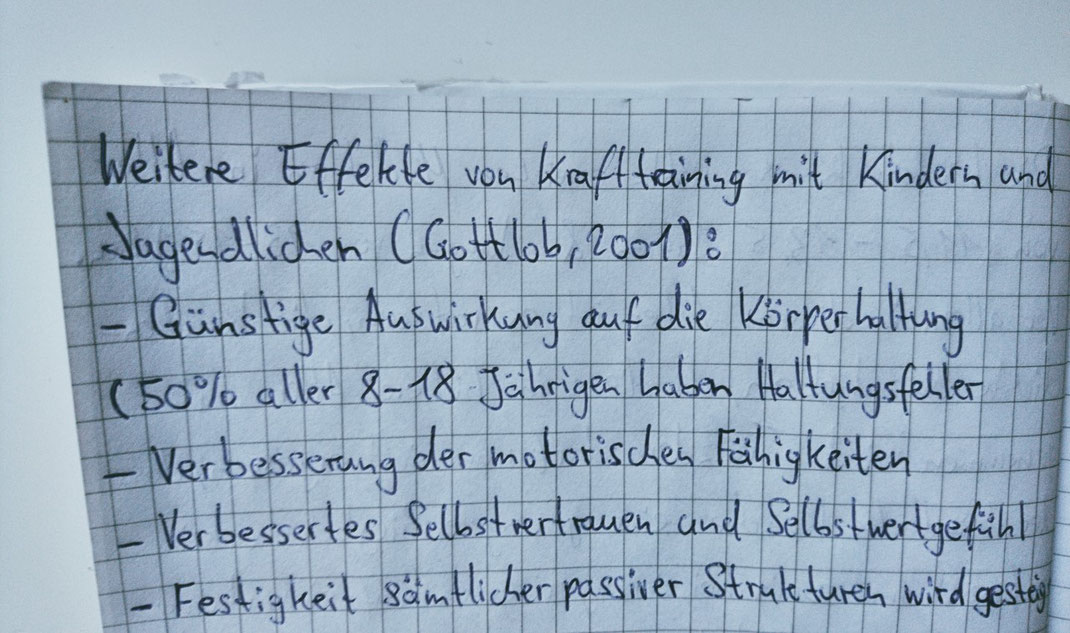 Weitere Effekte von Krafttraining mit Kindern und
Jugendlichen (Gottlob, 2001):
- Günstige Auswirkung auf die Körperhaltung
(50% aller 8-18 Jährigen haben Haltungsfehler
- Verbesserung der motorischen Fähigkeiten
- Verbessertes Selbstvertrauen und Selbstwertgefühl
- Festigkeit sämtlicher passiver Strukturen wird gestei